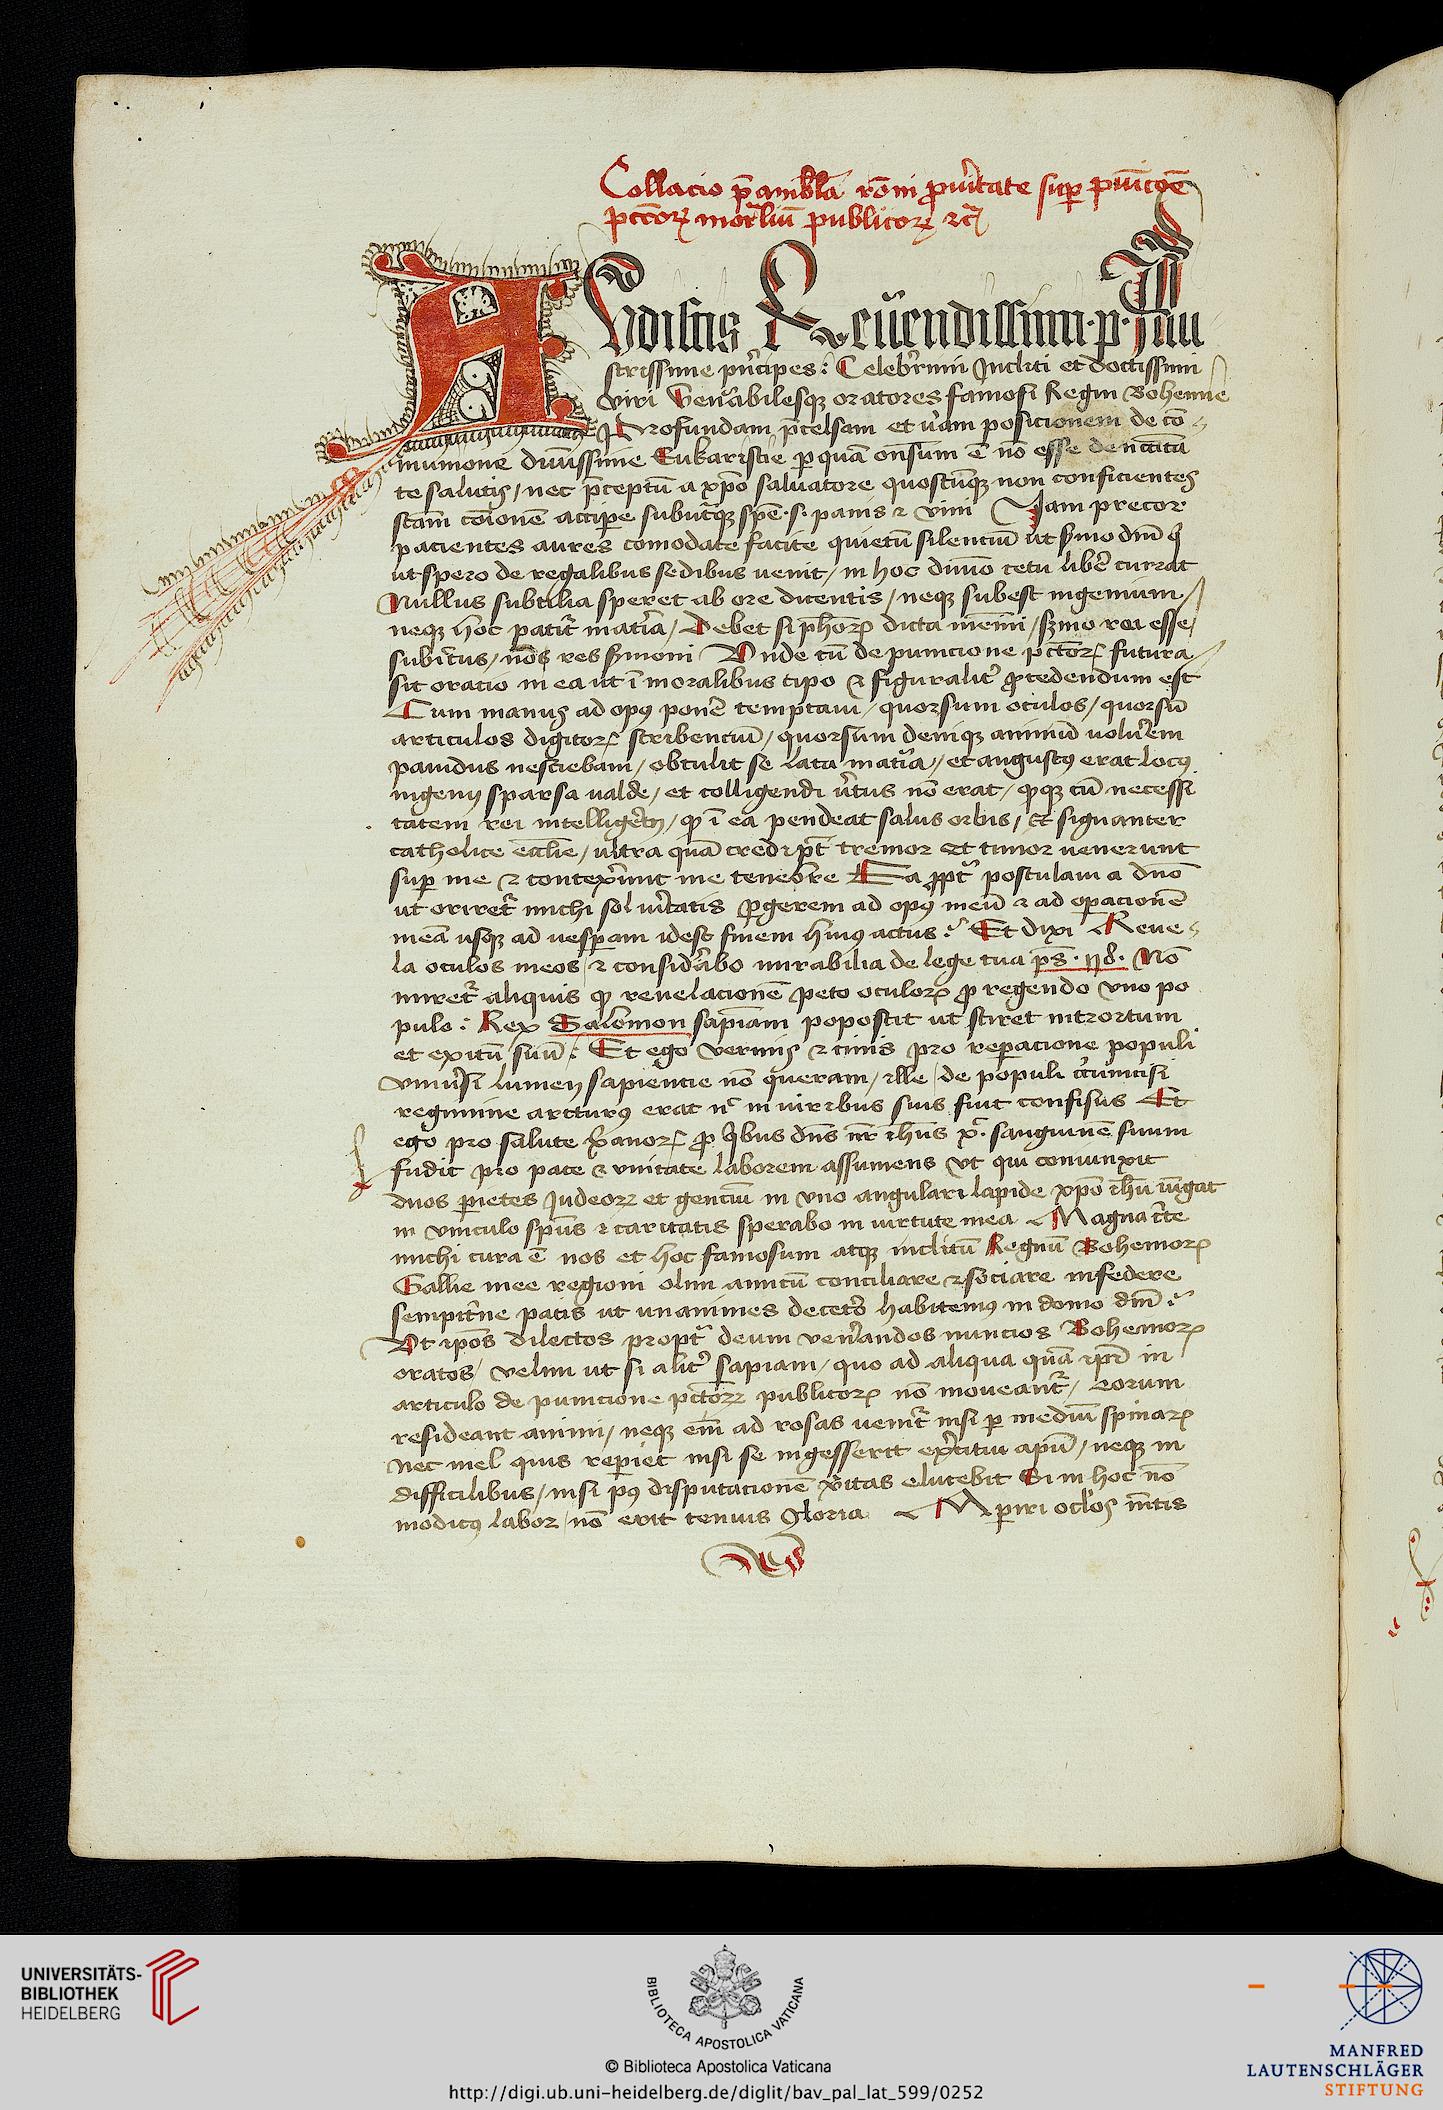 Collacio p̄ambl̄a rōni ꝓ ūitate suꝑ pūicōe
pctōꝝ mortaliū publicoꝝ ⁊cꝫ
Audistis Reuendissimi p Illu
strissime pn̄cipes : Celebrrimi Incliti et doctissimi
viri venerabilesqꝫ oratores famosi Regni Bohemie
Profundam p̄celsam et uam posicionem de cō
munione diuissime Eukaristie ꝑ quā onsum ē nō esse de ncc̄itā
te salutis / nec p̄ceptū a xp̄o saluatore quoscūqꝫ non conficientes
scām cōionē accipe sub utqꝫ spē .s. panis ⁊ vini Iam precor
pacientes aures comodate facite quietū silenciū ut smo dnī q
ut spero de regalibus sedibus uenit / in hoc diuo cetu libe currat
Nullus subtilia speret ab ore dicentis / neqꝫ subest ingenium
neqꝫ hoc patit mat̄ia / Debet si ph̄oꝝ dicta meīni / smo rei esse
subictus / nō res smoni Vnde cū de punicione pctōꝝ futura
sit oratio in ea ut ī moralibus tipo ⁊ figuralit ꝓcedendum est
Cum manus ad opus ponē temptaui / quorsum oculos / quorsū
articulos digitoꝝ scribenciū / quorsum deniqꝫ animū uoluem
pauidus nesciebam / obtulit se lata mat̄ia / et angustus erat locus
ingenij sparsa ualde / et colligendi utus nō erat / qꝫ cū necessi
tatem rei intelligem / ꝙ ī ea pendeat salus orbis / Et signanter
catholice eccl̄ie / ultra quā credi pt̄ tremor et timor uenerunt
suꝑ me ⁊ contexunt me tenebre Ea ꝓpt postulaui a dn̄o
ut oriret michi sol uitatis ꝑgerem ad opus meū ⁊ ad opacionē
meā usqꝫ ad uesꝑam idest finem huius actus : Et dixi Reue
la oculos meos / ⁊ considabo mirabilia de lege tua pˢ. 118. Nō
miret aliquis ꝙ reuelacionē peto oculoꝝ ꝓ regendo vno po
pulo : Rex Salomon sapiam poposcit ut sciret intrortum
et exitū suū : Et ego vermis ⁊ cinis pro reperacione populi
vniusi lumen sapiencie nō queram / ille / de populi ccūcisi
regimine arcturus erat n̄ in uiribus suis fuit confisus Et
ego pro salute xanoꝝ ꝓ qbus dn̄s nr̄ ih̄us x. sanguinē suum
fudit pro pace ⁊ vnitate laborem assumens vt qui coniunxit
duos pietes Iudeoꝝ et genciū in vno angulari lapide xpō ih̄u iūgat
in vinculo sp̄us ⁊ caritatis sperabo in uirtute mea Magna cte
michi cura ē nos et hoc famosum atqꝫ inclitū Regnū Bohemoꝝ
Gallie mee regioni olim amicū conciliare ⁊ sociare in federe
sempitne pacis ut unanimes deceto habitemus in domo dn̄i :
Vt ip̄os dilectos propt deum venandos nuncios Bohemoꝝ
oratos / velim ut si alit sapiam / quo ad aliqua quā ip̄i in
articulo de punicione pctōꝝ publicoꝝ nō moueant / eorum
resideant animi / neqꝫ em̄ ad rosas uenit nisi ꝑ mediū spinaꝝ
nec mel quis repiet nisi se ingesserit excitui apiū / neqꝫ in
difficilibus / nisi pus disputacionē vitas elucebit Si in hoc nō
modicus labor / nō erit tenuis Gloria Apiri oclos mētis
UNIVERSITÄTS-
BIBLIOTHEK
HEIDELBERG
BIBLIOTECA APOSTOLICA VATICANA
© Biblioteca Apostolica Vaticana
http://digi.ub.uni-heidelberg.de/diglit/bav_pal_lat_599/0252
MANFRED
LAUTENSCHLÄGER
STIFTUNG